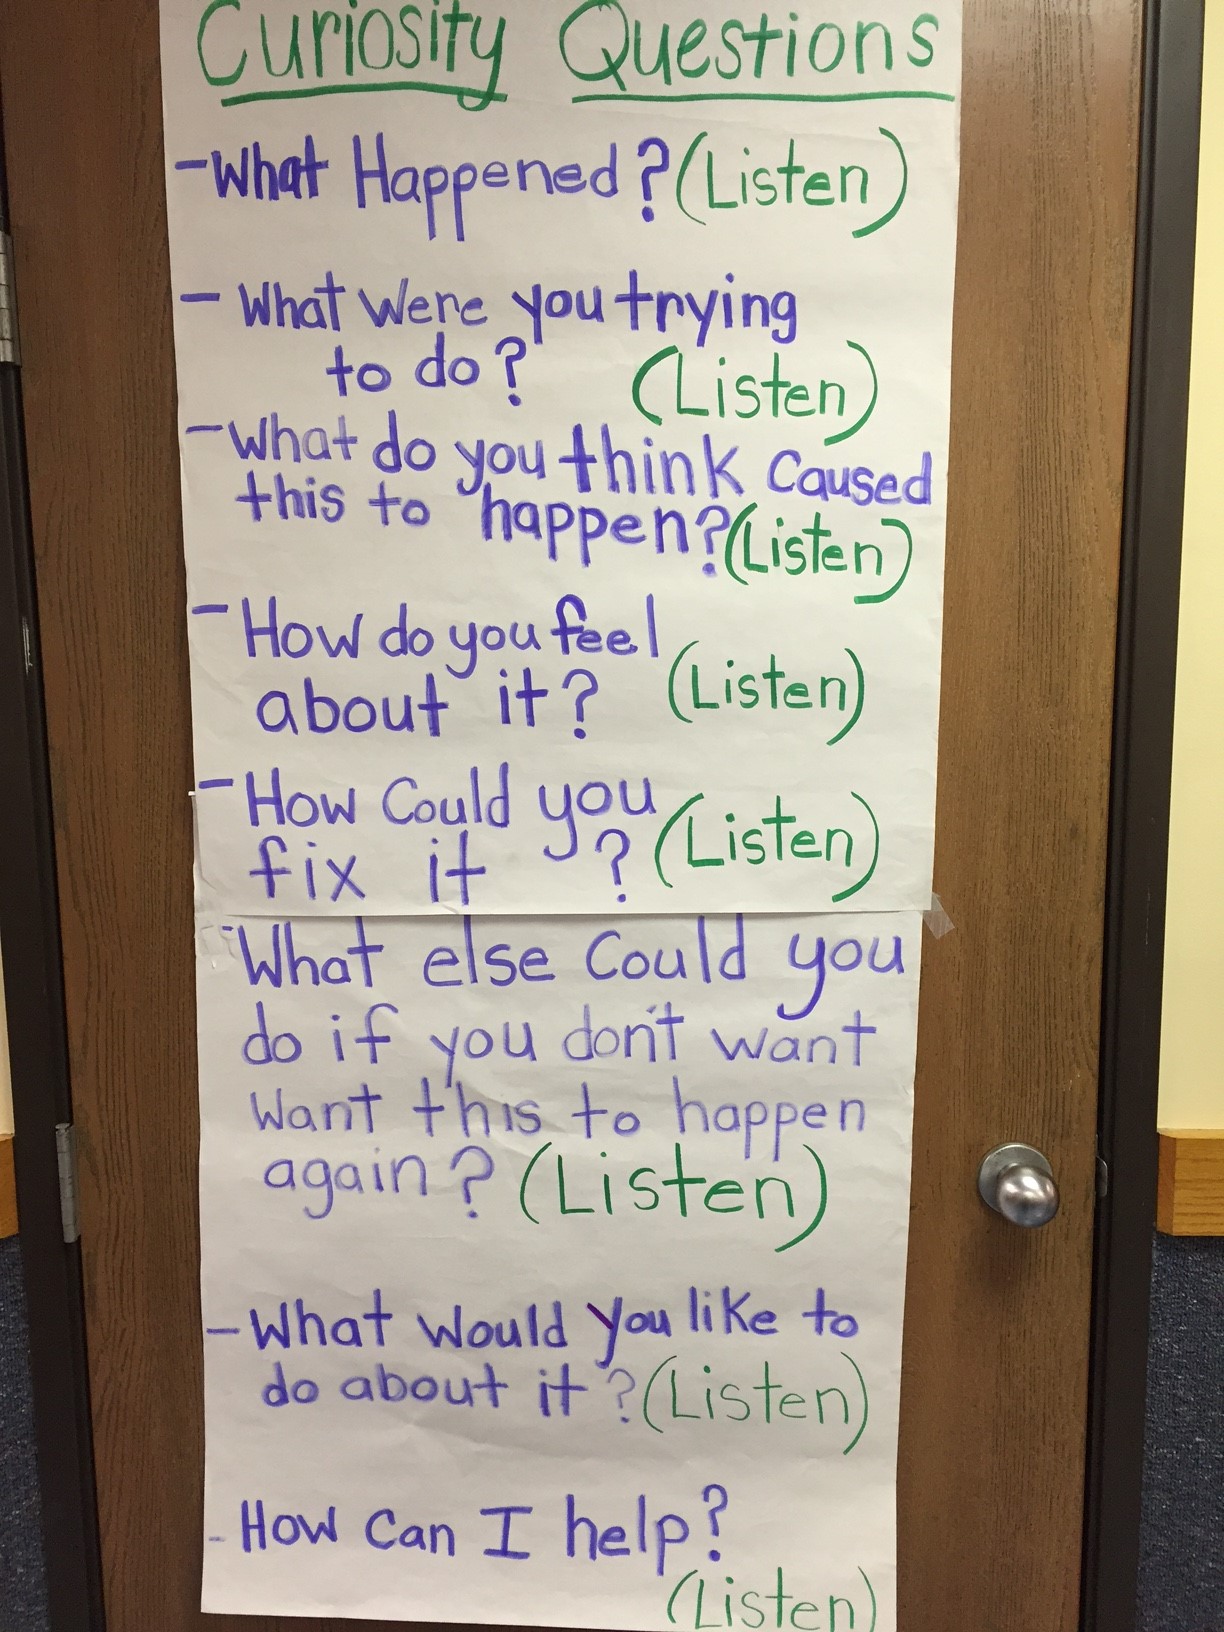 Curiosity Questions
- What Happened? (Listen)
- What were you trying
to do? (Listen)
- What do you think Caused
this to happen? (Listen)
- How do you feel
about it? (Listen)
- How Could you
fix it ? (Listen)
- What else Could you
do if you don't want
want this to happen
again? (Listen)
- What would you like to
do about it? (Listen)
- How Can I help?
(Listen)